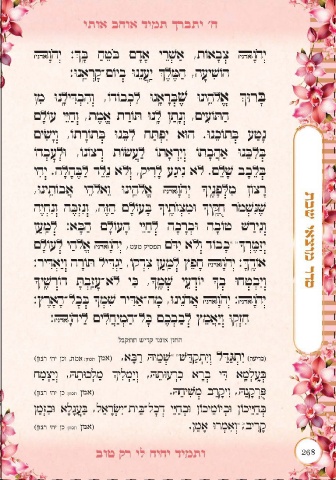 ה' יתברך תמיד אוהב אותי
יְהֹוָה צְבָאוֹת, אַשְׁרֵי אָדָם בֹּטֵחַ בָּךְ: יְהֹוָה
הוֹשִׁיעָה, הַמֶּלֶךְ יַעֲנֵנוּ בְיוֹם־קָרְאֵנוּ:
בָּרוּךְ אֱלֹהֵינוּ שֶׁבְּרָאָנוּ לִכְבוֹדוֹ, וְהִבְדִּילָנוּ מִן
הַתּוֹעִים, וְנָתַן לָנוּ תּוֹרַת אֱמֶת, וְחַיֵּי עוֹלָם
נָטַע בְּתוֹכֵנוּ. הוּא יִפְתַּח לִבֵּנוּ בְּתוֹרָתוֹ, וְיָשִׂים
בְּלִבֵּנוּ אַהֲבָתוֹ וְיִרְאָתוֹ לַעֲשׂוֹת רְצוֹנוֹ, וּלְעָבְדוֹ
בְּלֵבָב שָׁלֵם. לֹא נִיגַע לָרִיק, וְלֹא נֵלֵד לַבֶּהָלָה. יְהִי
רָצוֹן מִלְּפָנֶיךָ יְהֹוָה אֱלֹהֵינוּ וֵאלֹהֵי אֲבוֹתֵינוּ,
שֶׁנִּשְׁמֹר חֻקֶּיךָ וּמִצְוֹתֶיךָ בָּעוֹלָם הַזֶּה, וְנִזְכֶּה וְנִחְיֶה
וְנִירַשׁ טוֹבָה וּבְרָכָה לְחַיֵּי הָעוֹלָם הַבָּא: לְמַעַן
יְזַמֶּרְךָ כָבוֹד וְלֹא יִדֹּם יְהֹוָה אֱלֹהַי לְעוֹלָם
אוֹדֶךָּ: יְהֹוָה חָפֵץ לְמַעַן צִדְקוֹ, יַגְדִּיל תּוֹרָה וְיַאְדִּיר:
וְיִבְטְחוּ בְךָ יוֹדְעֵי שְׁמֶךָ, כִּי לֹא־עָזַבְתָּ דֹרְשֶׁיךָ
יְהֹוָה: יְהֹוָה אֲדֹנֵינוּ, מָה־אַדִּיר שִׁמְךָ בְּכָל־הָאָרֶץ:
חִזְקוּ וְיַאֲמֵץ לְבַבְכֶם כָּל־הַמְיַחֲלִים לַיהֹוָה:
החזן אומר קדיש תתקבל
יִתְגַּדַּל וְיִתְקַדַּשׁ שְׁמֵהּ רַבָּא,
בְּעָלְמָא דִּי בְרָא כִרְעוּתֵהּ, וְיַמְלִיךְ מַלְכוּתֵהּ, וְיַצְמַח
פֻּרְקָנֵהּ, וִיקָרֵב מְשִׁיחֵהּ.
בְּחַיֵּיכוֹן וּבְיוֹמֵיכוֹן וּבְחַיֵּי דְכָל־בֵּית־יִשְׂרָאֵל, בַּעֲגָלָא וּבִזְמַן
קָרִיב, וְאִמְרוּ אָמֵן.
ותמיד יהיה לי רק טוב
268
סדר מוצאי שבת